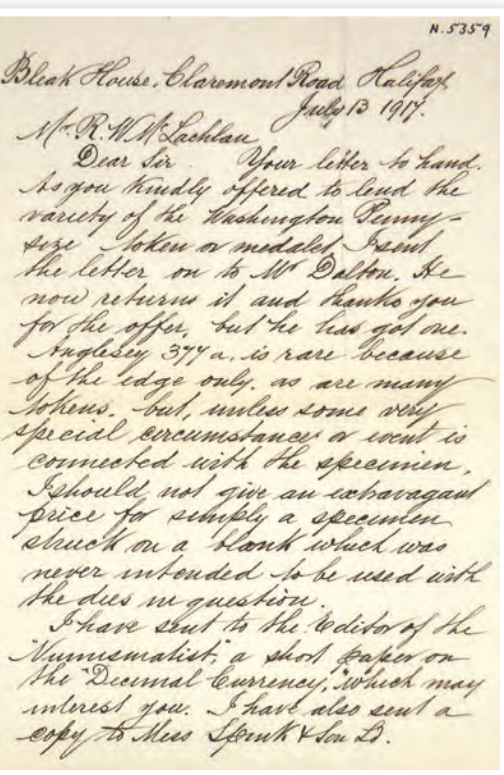 N.5359
Bleak House, Claremont Road Halifax
July 13 1917.
Mr. R. W. McLachlan
Dear Sir. Your letter to hand.
As you kindly offered to lend the
variety of the Washington Penny-
size token or medalet I sent
the letter on to Mr Dalton. He
now returns it and thanks you
for the offer, but he has got one.
Anglesey 377a. is rare because
of the edge only. as are many
tokens. but, unless some very
special circumstance or event is
connected with the specimen,
I should not give an extravagant
price for simply a specimen
struck on a blank which was
never intended to be used with
the dies in question.
I have sent to the Editor of the
"Numismatist," a short paper on
the "Decimal Currency," which may
interest you. I have also sent a
copy to Mess Spink & Son Ld.